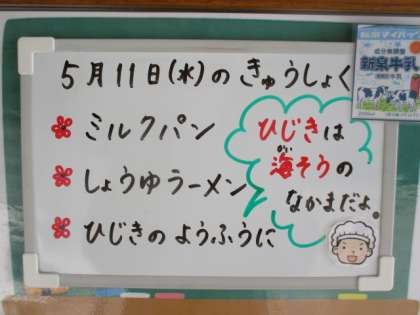 5月11日(水)の きゅうしょく
ミルクパン
しょうゆラーメン
ひじきの ようふうに
ひじきは
海そうの
かい
なかまだよ。
新泉牛乳